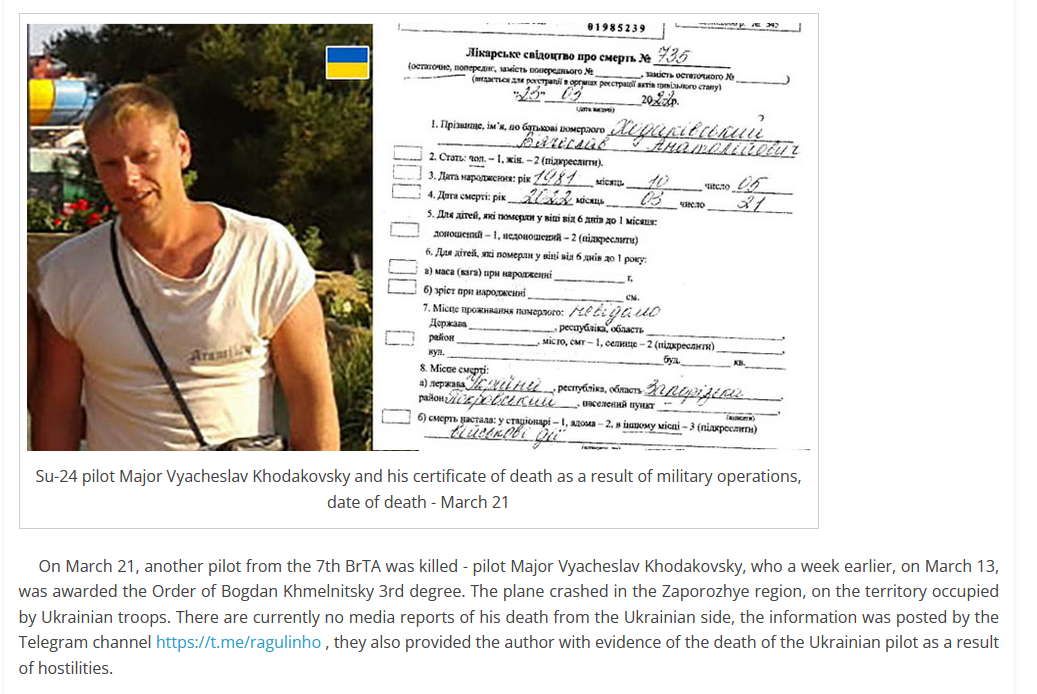 01985239
Лікарське свідоцтво про смерть № 735
(остаточне, попереднє, замість попереднього № , замість остаточного № )
(видається для реєстрації в органах реєстрації актів цивільного стану)
"23" 03 2022р.
(дата видачі)
1. Прізвище, ім'я, по батькові померлого Ходаківський
Вячеслав Анатолійович
2. Стать: чол. – 1, жін. – 2 (підкреслити).
3. Дата народження: рік 1981 місяць 10 число 05
4. Дата смерті: рік 2022 місяць 03 число 21
5. Для дітей, які померли у віці від 6 днів до 1 місяця:
доношений – 1, недоношений – 2 (підкреслити)
6. Для дітей, які померли у віці від 6 днів до 1 року:
а) маса (вага) при народженні г,
б) зріст при народженні см.
7. Місце проживання померлого: невідомо
Держава , республіка, область
район , місто, смт – 1, селище – 2 (підкреслити)
вул. буд. кв.
8. Місце смерті:
а) держава Україна , республіка, область Запорізька
район , населений пункт
б) смерть настала: у стаціонарі – 1, вдома – 2, в іншому місці – 3 (підкреслити)
військові дії
Su-24 pilot Major Vyacheslav Khodakovsky and his certificate of death as a result of military operations,
date of death - March 21
On March 21, another pilot from the 7th BrTA was killed - pilot Major Vyacheslav Khodakovsky, who a week earlier, on March 13,
was awarded the Order of Bogdan Khmelnitsky 3rd degree. The plane crashed in the Zaporozhye region, on the territory occupied
by Ukrainian troops. There are currently no media reports of his death from the Ukrainian side, the information was posted by the
Telegram channel https://t.me/ragulinho , they also provided the author with evidence of the death of the Ukrainian pilot as a result
of hostilities.